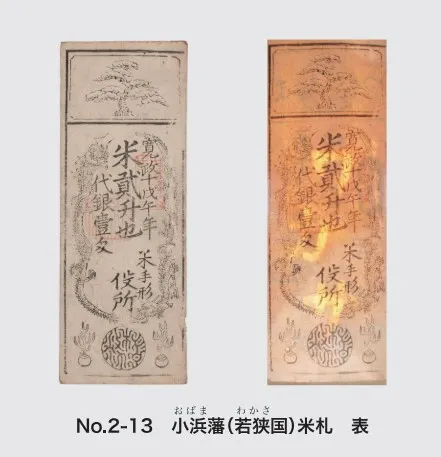 寛政十戊午年
米貳升也
代銀壹匁
米手形
役所
寛政十戊午年
米貳升也
代銀壹匁
米手形
役所
おばま わかさ
No.2-13 小浜藩(若狭国)米札 表